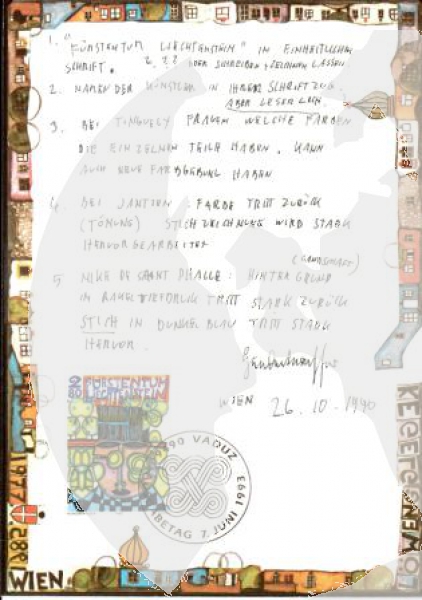 1. "FÜRSTENTUM LIECHTENSTEIN" IN EINHEITLICHER
SCHRIFT. ODER SCHREIBEN + ZEICHNEN LASSEN
2. NAMEN DER KÜNSTLER IN IHREM SCHRIFTZUG
ABER LESERLICH.
3. BEI TINGUELY FRAGEN WELCHE FARBEN
DIE EINZELNEN TEILE HABEN. KANN
AUCH NEUE FARBGEBUNG HABEN
4. BEI JANSSEN: FARBE TRITT ZURÜCK
(TÖNUNG) STICHZEICHNUNG WIRD STARK
HERVORGEARBEITET
(LANDSCHAFT)
5 NIKI DE SAINT PHALLE: HINTERGRUND
IN TRITT STARK ZURÜCK
STICH IN DUNKELBLAU TRITT STARK
HERVOR.
WIEN 26.10.1990
280
FÜRSTENTUM
LIECHTENSTEIN
90 VADUZ
7. JUNI 1993
1977
1882
WIEN